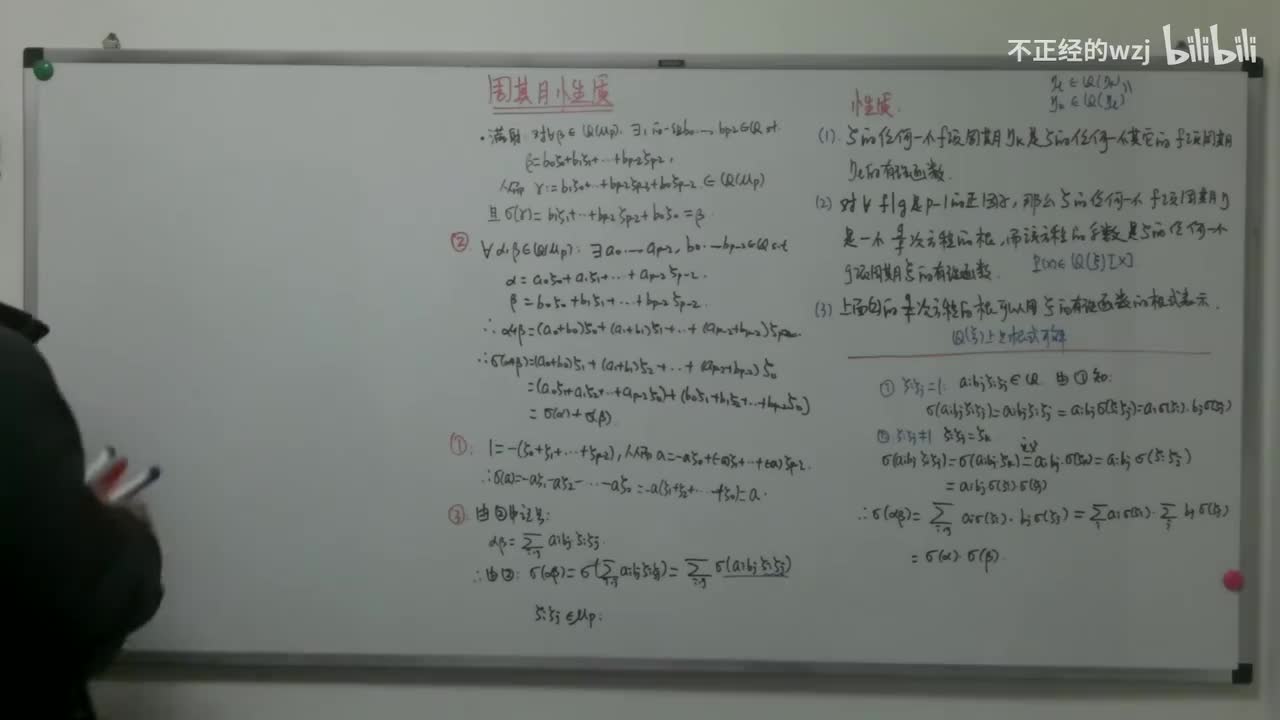 不正经的wzj bilibili
周期性质
·满射: 对∀β∈Q(μp), ∃ b0,…,bp-2∈Q s.t.
β=b0ζ0+b1ζ1+…+bp-2ζp-2,
从而 γ:=b1ζ0+…+bp-2ζp-3+b0ζp-2∈Q(μp)
且 σ(γ)=b1ζ1+…+bp-2ζp-2+b0ζ0=β
② ∀α,β∈Q(μp): ∃a0,…,ap-2, b0,…,bp-2∈Q s.t
α=a0ζ0+a1ζ1+…+ap-2ζp-2.
β=b0ζ0+b1ζ1+…+bp-2ζp-2.
∴α+β=(a0+b0)ζ0+(a1+b1)ζ1+…+(ap-2+bp-2)ζp-2.
∴σ(α+β)=(a0+b0)ζ1+(a1+b1)ζ2+…+(ap-2+bp-2)ζ0
=(a0ζ1+a1ζ2+…+ap-2ζ0)+(b0ζ1+b1ζ2+…+bp-2ζ0)
=σ(α)+σ(β).
① 1=-(ζ0+ζ1+…+ζp-2), 从而 a=-aζ0+(-a)ζ1+…+(-a)ζp-2.
∴σ(a)=-aζ1-aζ2-…-aζ0=-a(ζ1+ζ2+…+ζ0)=a.
③ 由②中记号:
αβ=∑i,j aibjζiζj.
∴由②: σ(αβ)=σ(∑i,j aibjζiζj)=∑i,j σ(aibjζiζj)
ζiζj∈μp:
性质.
(1). ζ的任何一个f项周期ηk是ζ的任何一个其它的f项周期
ηl的有理函数.
(2) 对∀ f|g是p-1的正因子, 那么ζ的任何一个f项周期η
是一个g/f次方程的根, 而该方程的系数是ζ的任何一个
g项周期ξ的有理函数. P(x)∈Q(ξ)[X]
(3) 上面的g/f次方程的根可以用ξ的有理函数的根式表示.
Q(ξ)上是根式可解
① ζiζj=1. aibjζiζj∈Q. 由①知:
σ(aibjζiζj)=aibjζiζj=aibjσ(ζiζj)=aiσ(ζi)·bjσ(ζj)
② ζiζj≠1 ζiζj=ζk
σ(aibjζiζj)=σ(aibjζk)=aibjσ(ζk)=aibjσ(ζiζj)
=aibjσ(ζi)σ(ζj)
∴σ(αβ)=∑i,j aiσ(ζi)·bjσ(ζj)=∑i aiσ(ζi)·∑j bjσ(ζj)
=σ(α)·σ(β).